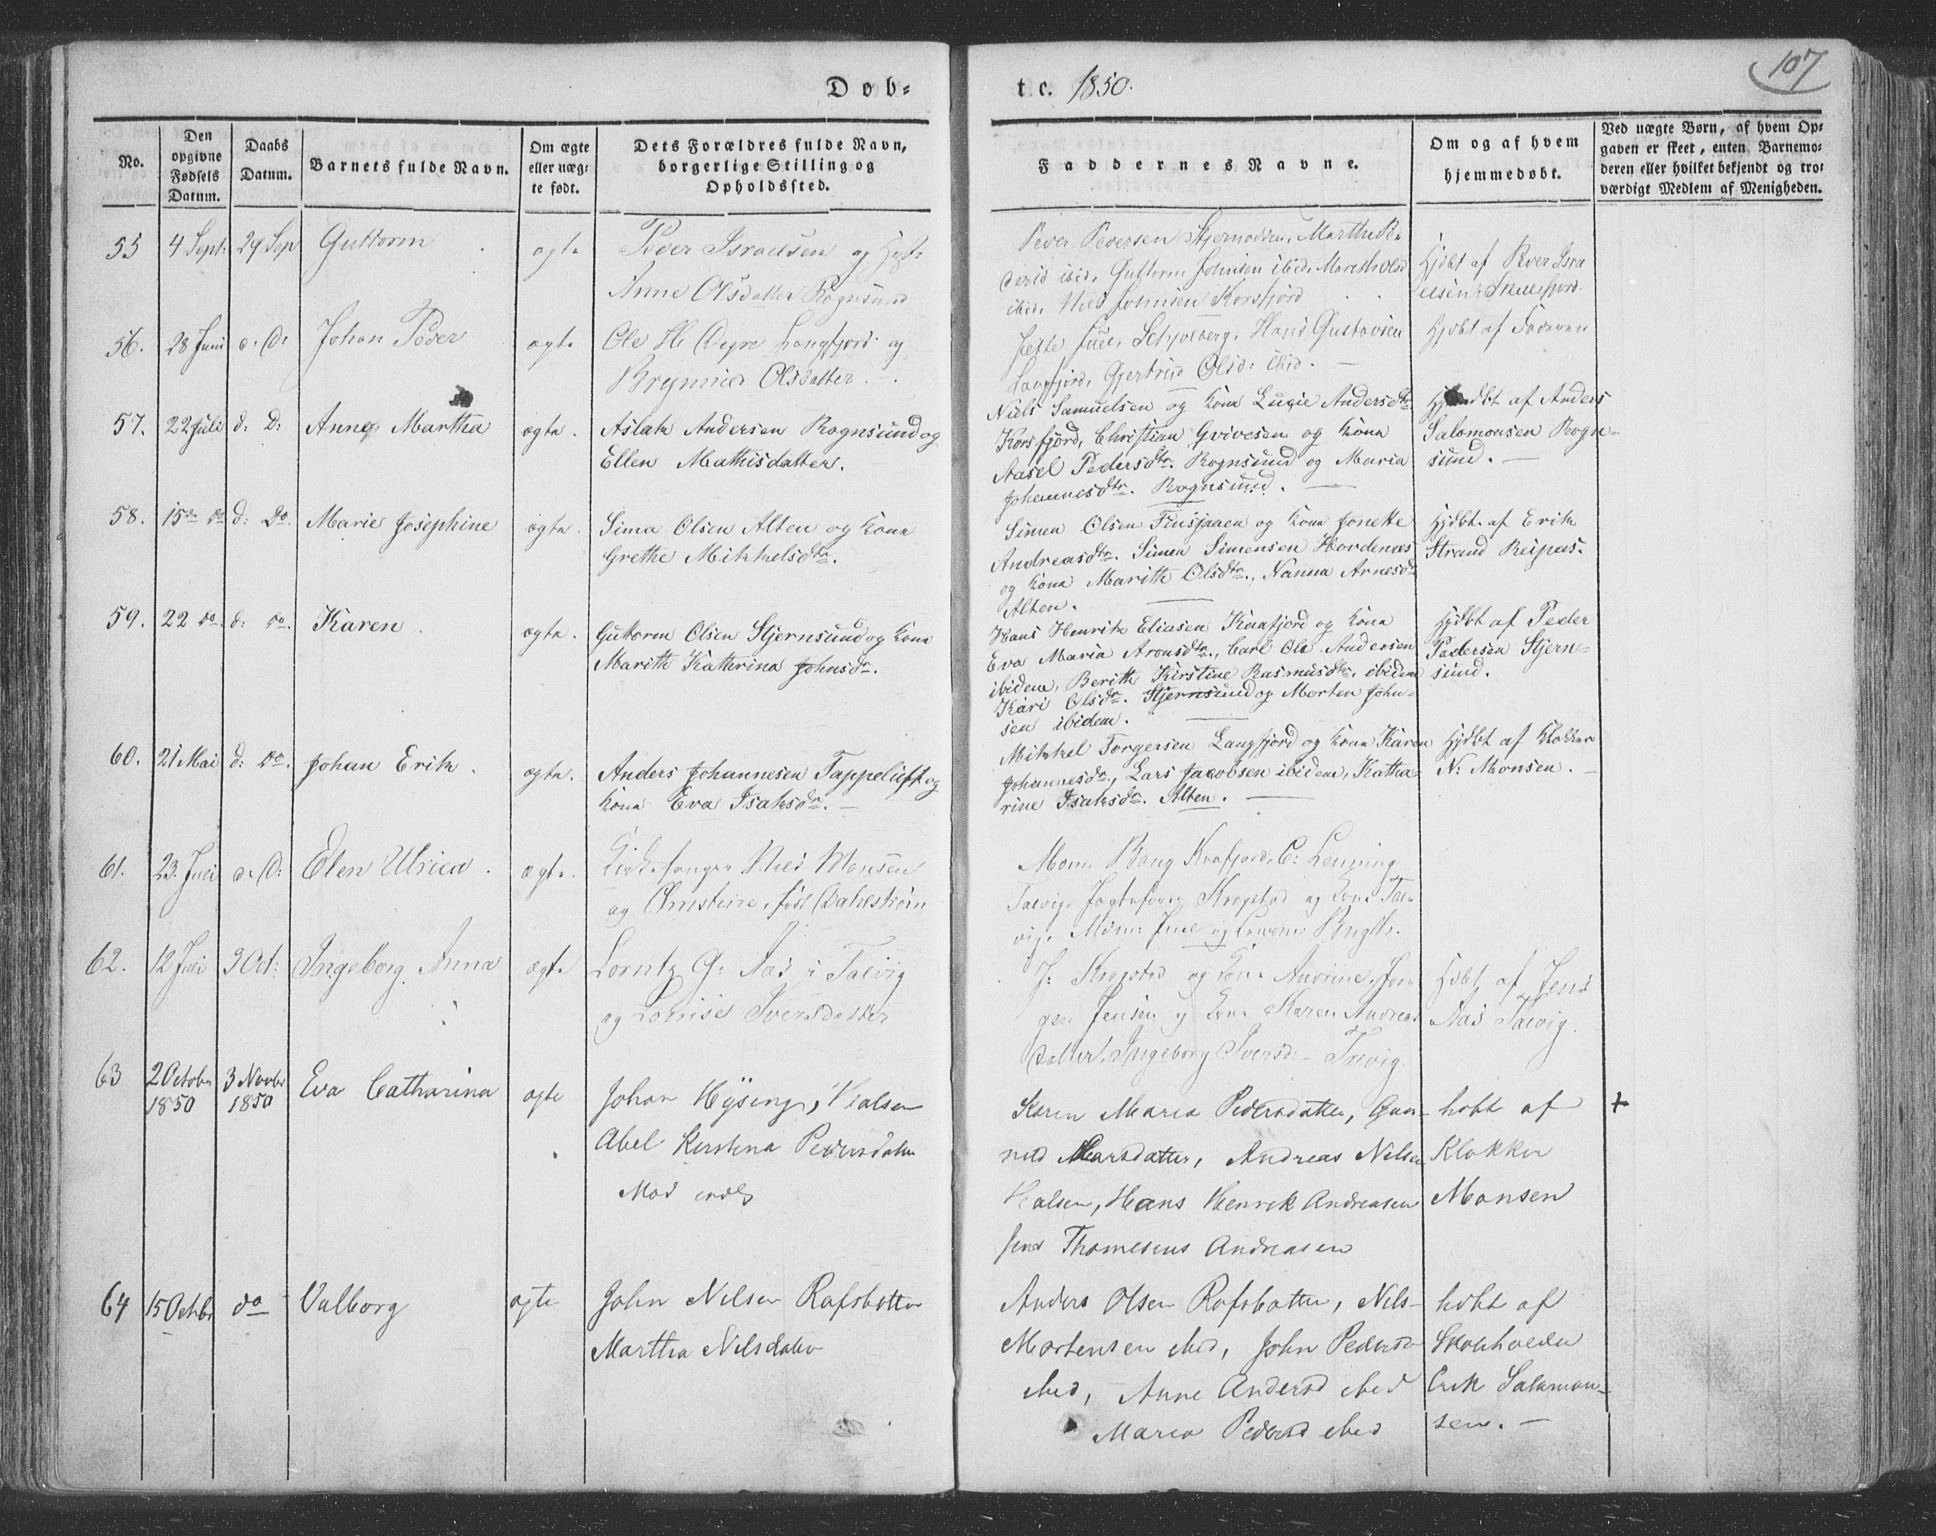 Dob-
t c. 1850.
107
No.
Den opgivne Fødsels Datum.
Daabs Datum.
Barnets fulde Navn.
Om ægte eller uæg-te født.
Dets Forældres fulde Navn, borgerlige Stilling og Opholdssted.
Faddernes Navne.
Om og af hvem hjemmedøbt.
Ved uægte Børn, af hvem Op-
gaven er skeet, enten Barnemo-
deren eller hvilket bekjendt og tro-
værdigt Medlem af Menigheden.
55 4 Sept: 29 Sep Guttorm ægte
Peder Israelsen og
Anne Olsdatter Rognsund
Peder Pedersen Stjernodden, Marthe Pe-
ibid. Guttorm Johnsen ibid. Mareth Olsd
ibid. Niels Johnsen Korsfjord
Hjdbt af Peder Isra
elsen
56. 28 Juni d: D: Johan Peder ægte
Ole H. Langfjord og
Olsdatter.
Hans Gustavsen
Langfjord, Gjertrud Olsd: ibid.
Hjdbt af Faderen
57. 22 Juli d: D: Anne Martha ægte.
Aslak Andersen Rognsund og
Ellen Mathisdatter.
Niels Samuelsen og Kona Lucie Andersdtr
Korsfjord, Christian Gvivesen og Kona
Aasel Pedersdtr. Rognsund og Maria
Johannesdtr. Rognsund.
Hjdbt af Anders
Salomonsen Rogn-
sund.
58. 15de do d: Do. Marie Josephine ægte.
Sima Olsen Alten og Kona
Grethe Mikkelsdtr.
Simen Olsen og Kona Jonette
Andreasdtr. Simen Simensen
og Kona Marith Olsdtr., Nanna Arnesdtr
Alten.
Hjdbt. af Erik
Strand Reipas.
59. 22 do. d: do. Karen ægte.
Guttorm Olsen Stjernsund og Kona
Marith Kathrina Johnsdr.
Hans Henrik Eliasen Kaafjord og Kona
Eva Maria Aronsdtr., Carl Ole Andersen
ibidem, Berith Kirstine Rasmusdtr. ibidem
Kari Olsdr. Stjernsund og Morten John-
sen ibidem.
Hjdbt af Peder
Pedersen Stjern-
sund.
60. 21 Mai d: do. Johan Erik ægte.
Anders Johannesen Tappeluft og
Kona Eva Isaksdr.
Mikkel Torgersen Langfjord og Kona Karen
Johannesdr., Lars Jacobsen ibidem, Katha-
rine Isaksdr. Alten.
Hjdbt af Klokker
N: Monsen.
61. 23. Juli d: D: Elen Ulrica ægte.
Kirkesanger Niels Monsen
og Christine, født Dahlstrøm
Kaafjord, C: Lenning
Talvig, Krogstad og Kone Tal-
vig.
62. 12 Juli 3 Oct: Ingeborg Anna ægte
Lorntz G: Aas i Talvig
og Lovise Iversdatter
J: Krogstad og Kone Andrine, Jør-
gen Jensen og Kone Karen Andreas
datter, Ingeborg Iversd: Talvig.
Hjdbt af Jens
Aas Talvig.
63 2 October 1850 3 Novbr 1850 Eva Catharina ægte
Johan Hysing, Halsen
Abel Kirstina Pedersdatter
Karen Maria Pedersdatter, Gun-
nild Larsdatter, Andreas Nilsen
Halsen, Hans Henrik Andreasen
Thomesius Andreasen
hdbt af
Klokker
Monsen
+
64 15 Octbr do Valborg ægte
John Nilsen Rafsbotten
Martha Nilsdatter
Anders Olsen Rafsbotten, Nils-
Mortensen ibid, John Pederse
ibid, Anne Andersd ibid
Maria Pedersd ibid
hdbt af
Skoleholder
Erik Salamon-
sen.